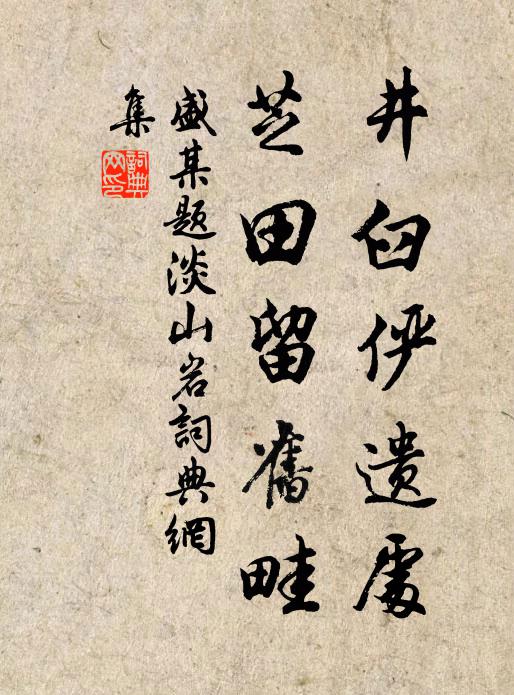 井臼俨遗處
芝田留舊畦
盛某题淡山岩詞典網
集
詞典網印